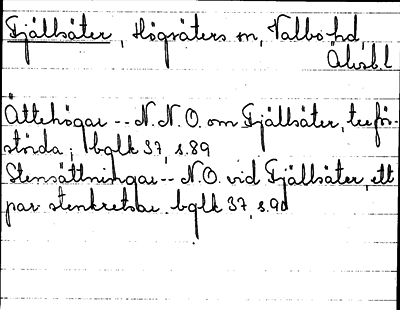 Fjällsäter, Högsäters sn, Valbo hd,
Älvsbl
Ättehögar -- N.N.O. om Fjällsäter, tre för-
störda; bglk 37, s.89
Stensättningar -- N.O. vid Fjällsäter, ett
par stenkretsar. bglk 37, s.90